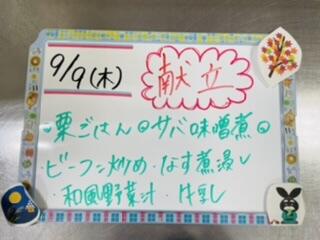 9/9(木)
献立
・栗ごはん・サバ味噌煮・
ビーフン炒め・なす煮浸し
・和風野菜汁・牛乳